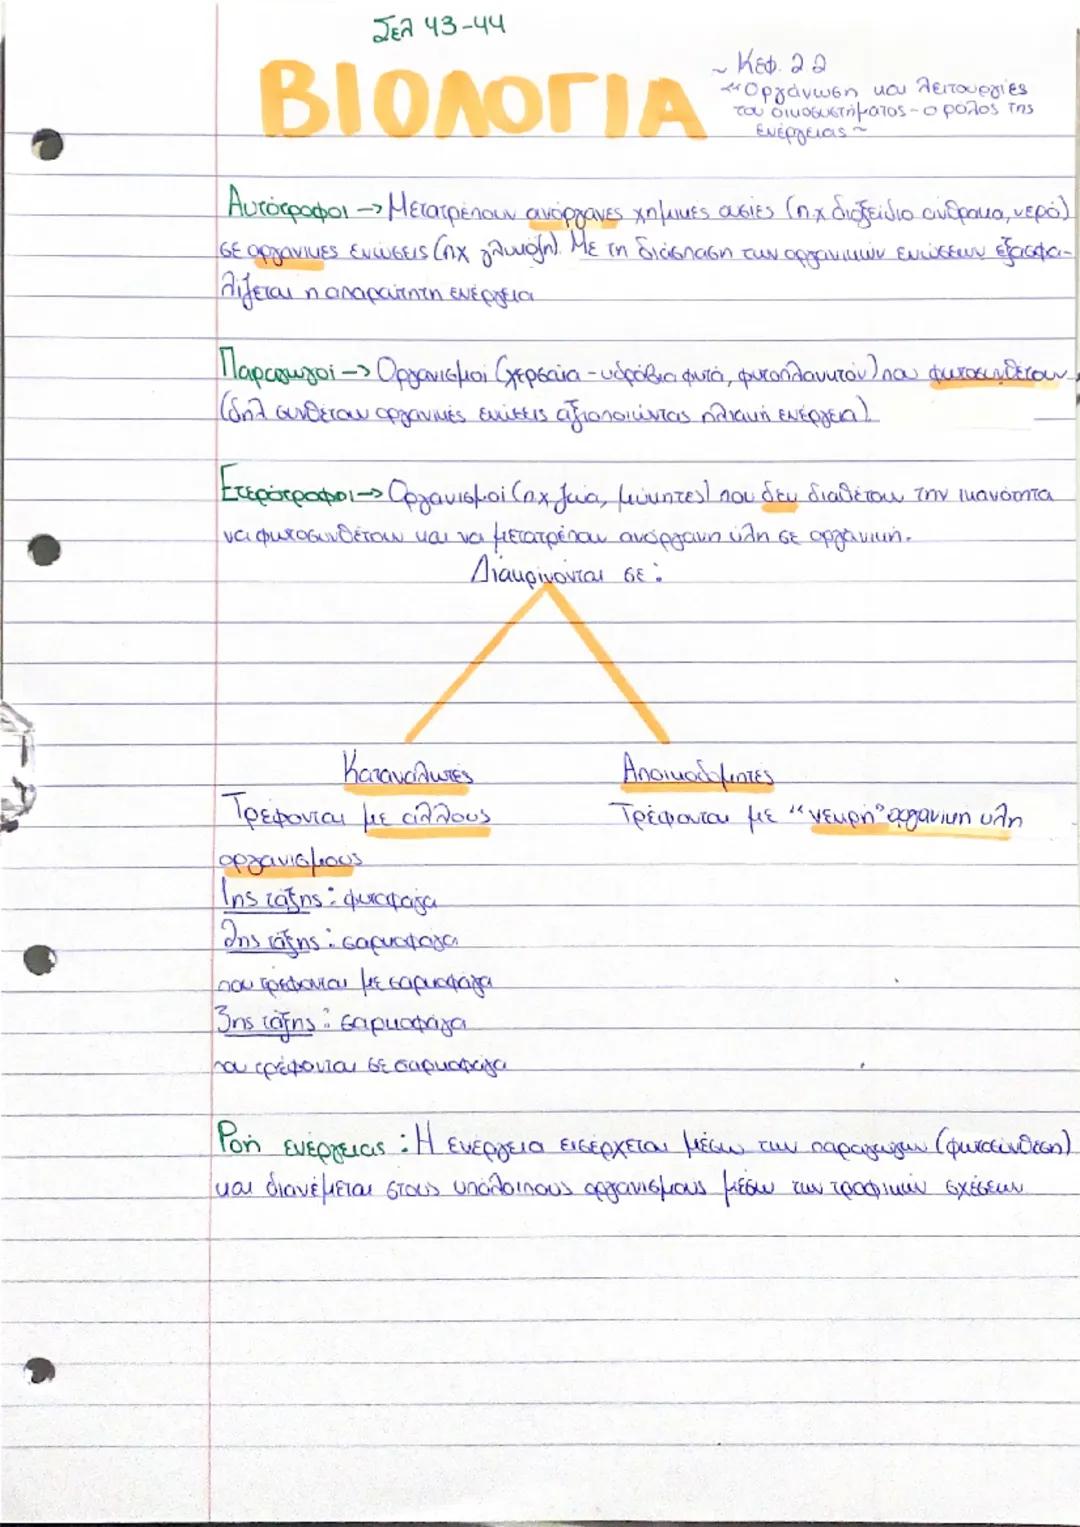 Σελ 43-44
ΒΙΟΛΟΓΙΑ
~ Κεφ. 2 2
"Οργάνωση και λειτουργίες
του οικοσυστήματος - ο ρόλος της
ενέργειας ~
Αυτότροφοι → Μετατρέπουν ανόργανες χημικές ουσίες (πχ διοξείδιο άνθρακα, νερό)
σε οργανικές ενώσεις (πχ γλυκόζη). Με τη διάσπαση των οργανικών ενώσεων εξασφα-
λίζεται η απαραίτητη ενέργεια
Παραγωγοί → Οργανισμοί (χερσαία - υδρόβια φυτά, φυτοπλανκτόν) που φωτοσυνθέτουν
(δηλ συνθέτουν οργανικές ενώσεις αξιοποιώντας ηλιακή ενέργεια).
Ετερότροφοι → Οργανισμοί (πχ ζώα, μύκητες) που δεν διαθέτουν την ικανότητα
να φωτοσυνθέτουν και να μετατρέπουν ανόργανη ύλη σε οργανική.
Διακρίνονται σε:
Καταναλωτές Αποικοδομητές
Τρέφονται με άλλους Τρέφονται με "νεκρή" οργανική ύλη
οργανισμούς
1ης τάξης: φυτοφάγα
2ης τάξης: σαρκοφάγα
που τρέφονται με σαρκοφάγα
3ης τάξης: σαρκοφάγα
που τρέφονται σε σαρκοφάγα
Ροή ενέργειας: Η ενέργεια εισέρχεται μέσω των παραγωγών (φωτοσύνθεση)
και διανέμεται στους υπόλοιπους οργανισμούς μέσω των τροφικών σχέσεων